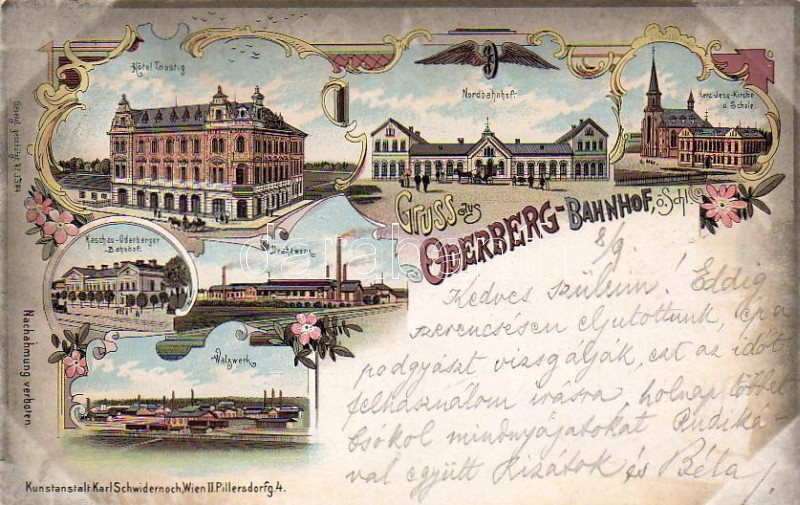 Hôtel Lustig
Nordbahnhof.
Herz-Jesu-Kirche
u. Schule.
Gruss aus
Oderberg-Bahnhof, ö. Schl.
Kaschau-Oderberger
Bahnhof.
Drahtwerk
Walzwerk
8/9.
Kedves szüleim! Eddig
szerencsésen eljutottunk, ép a
podgyászt vizsgálják, ezt az időt
felhasználom irásra, holnap többet
Csókol mindnyájatokat Rudiká-
val együtt Rizátok és Béla
Nachahmung verboten.
Kunstanstalt Karl Schwidernoch, Wien II. Pillersdorfg. 4.
darabanth